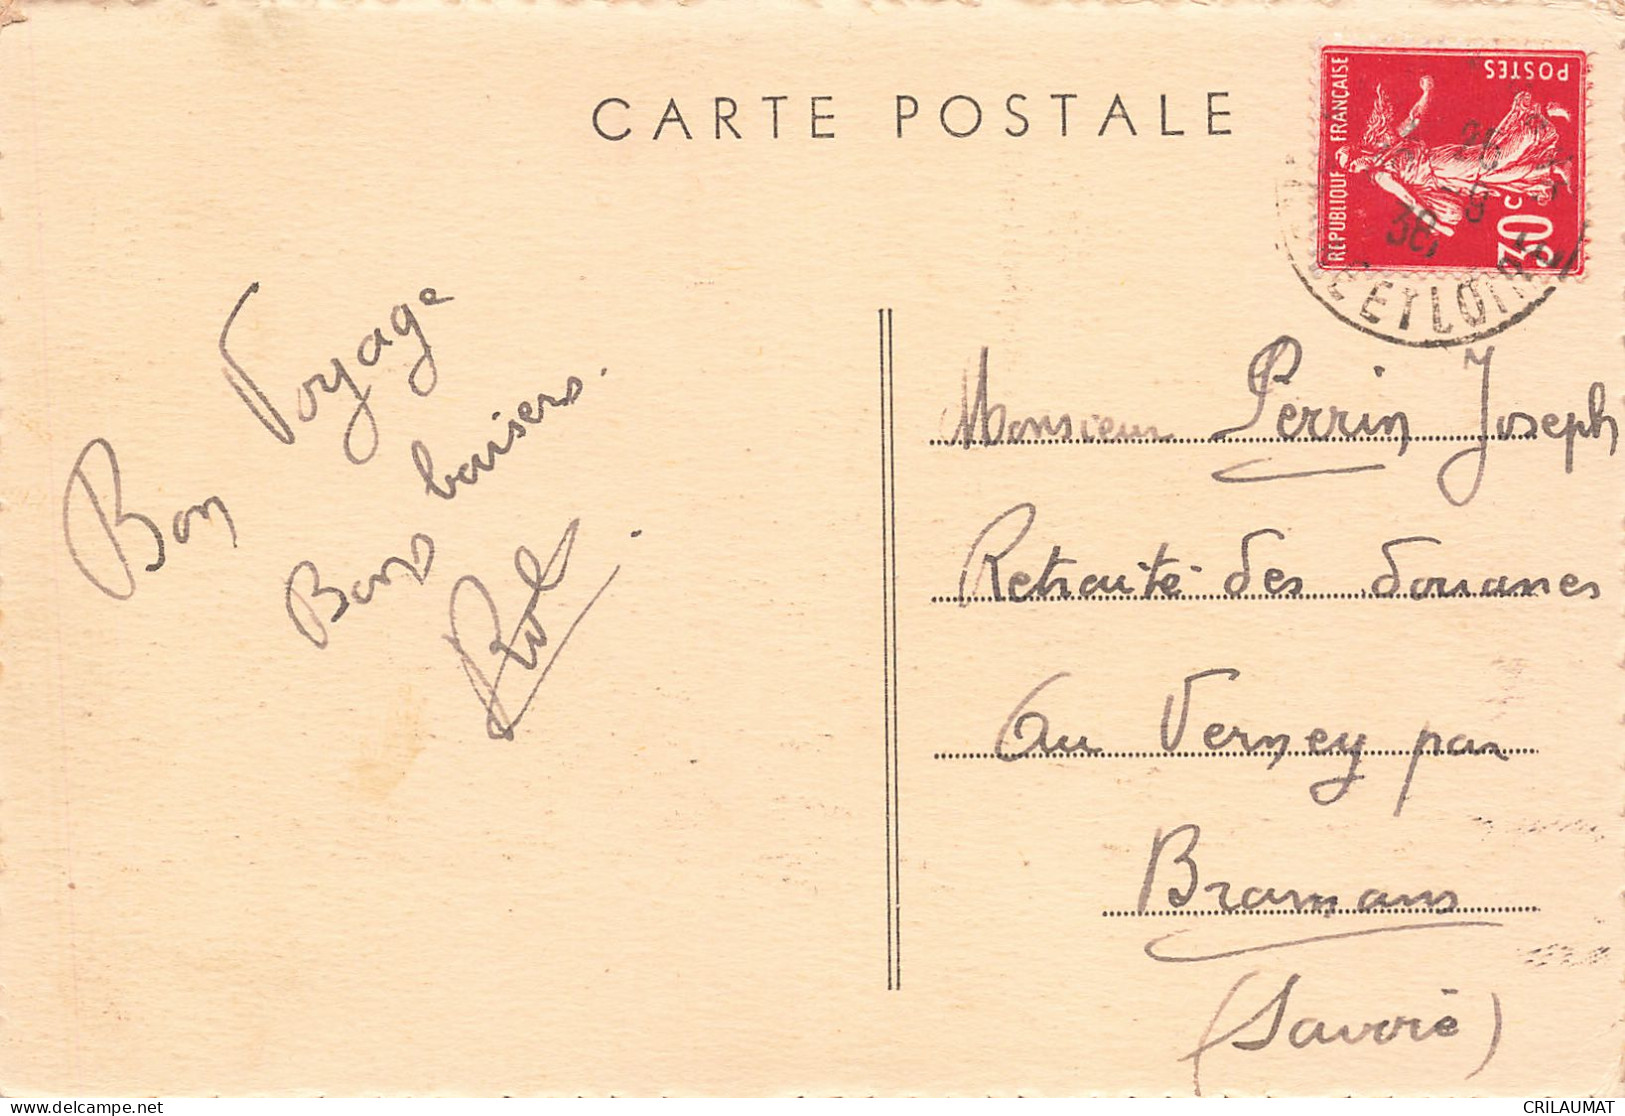 CARTE POSTALE
REPUBLIQUE FRANÇAISE
POSTES
30c
26
-9
38
ET LOIRE
Bon Voyage
Bons baisers.
Monsieur Perrin Joseph
Retraité des douanes
au Verney par
Bramans
(Savoie)
CRILAUMAT